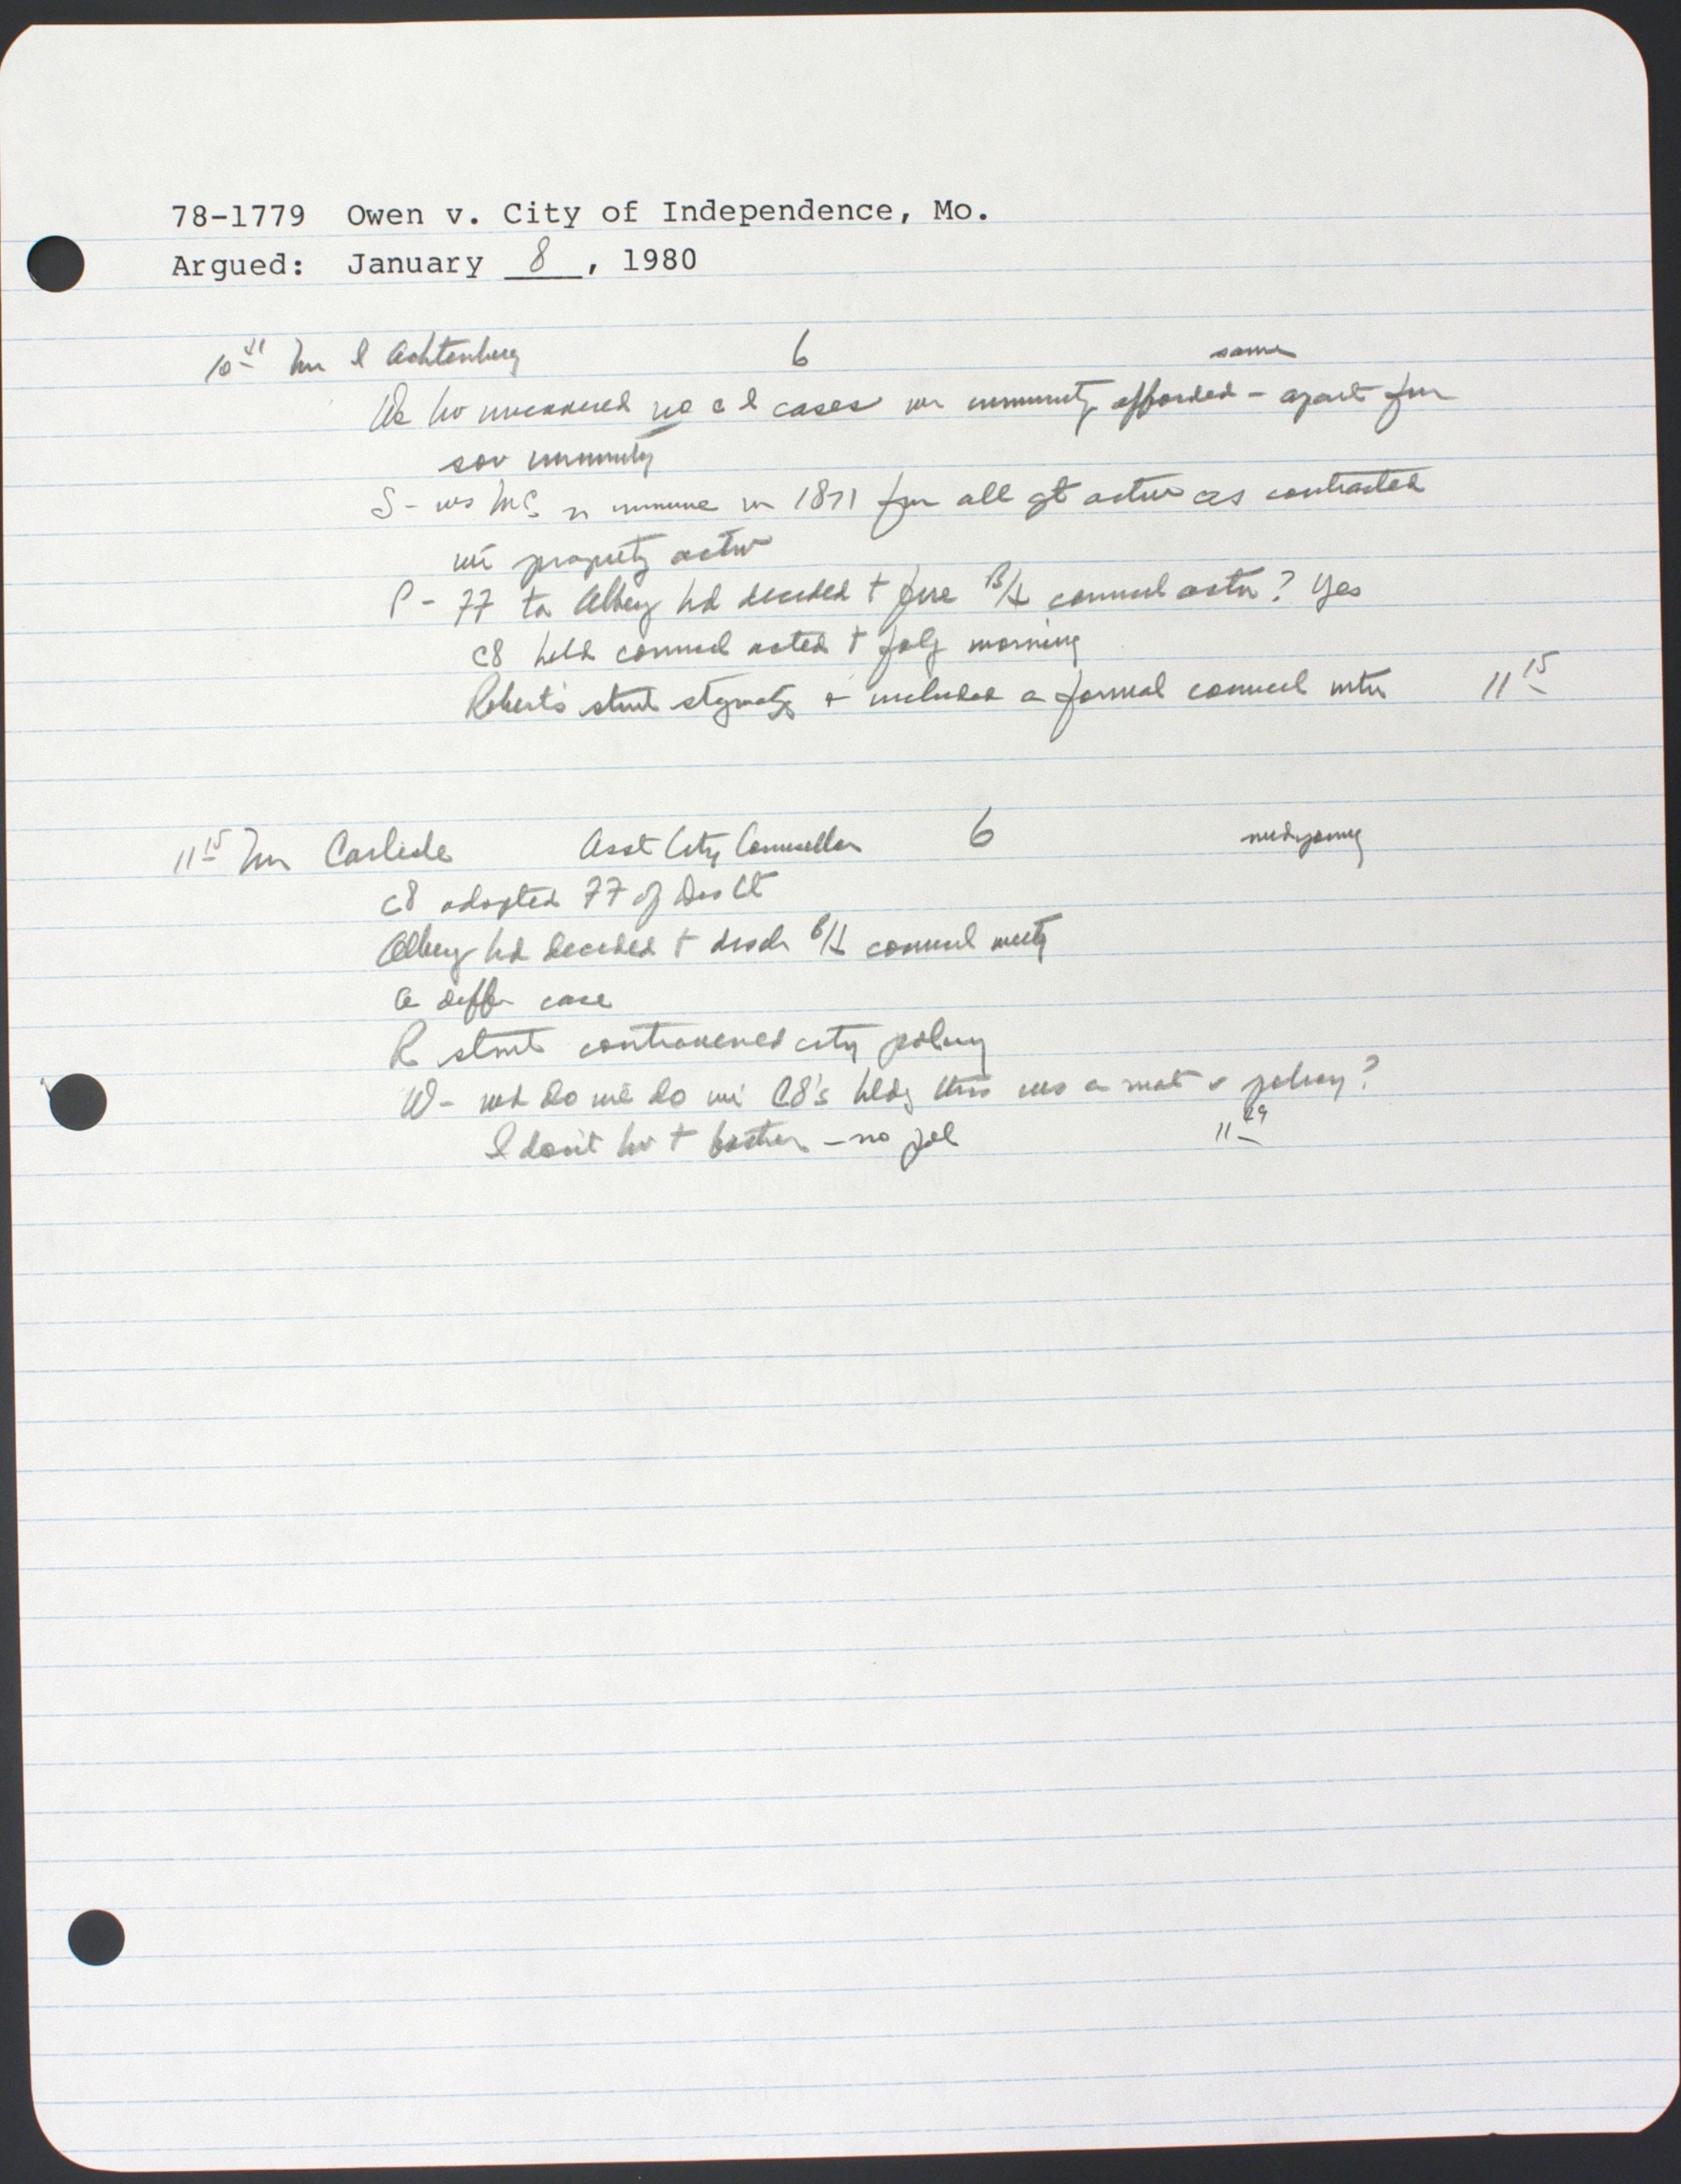 78-1779 Owen v. City of Independence, Mo.
Argued: January 8, 1980
10 41 Mr I Achtenberg 6 same
We hv uncovered no c l cases wr immunity afforded - apart fm
sov immunity
S - ws MC n immune in 1871 fm all gt actn as contrasted
wi propriety actn
P - 77 tt Alberg hd decided t fire B/4 council actn? Yes
C8 held council acted t folg morning
Robert's stmt stigmatizg & included a formal council
11 15
11 15 Mr Carlisle Asst City Counsellor 6 mid young
C8 adopted 77 of Dis Ct
Alberg hd decided t disch B/4 council meetg
A diffr case
R stmt contravened city policy
W - wt do we do wi C8's hldg this ws a mat v policy?
I don't hv t bother - no
11 29